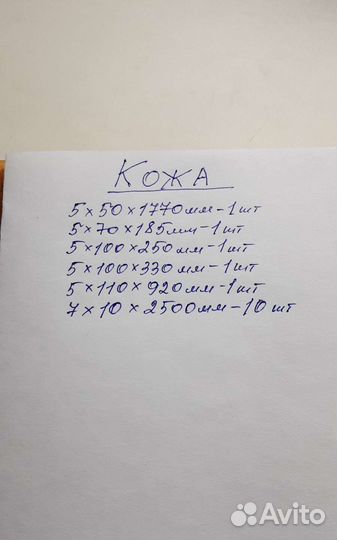 КОЖА
5×50×1770мм-1шт
5×70×185мм-1шт
5×100×250мм-1шт
5×100×330мм-1шт
5×110×920мм-1шт
7×10×2500мм-10шт
Avito